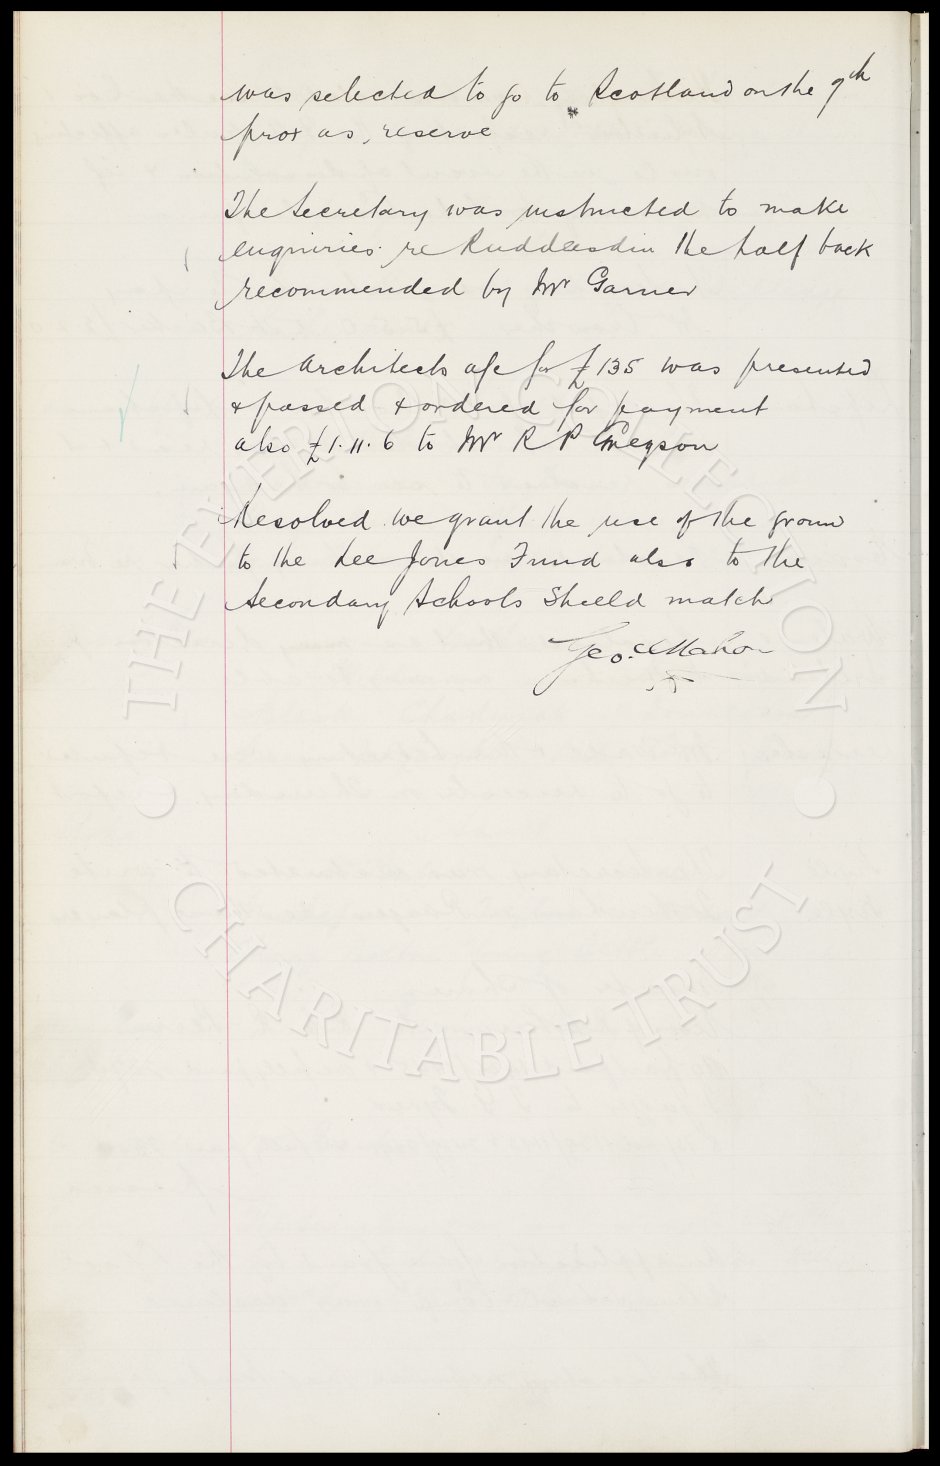 was selected to go to Scotland on the 9th
prox as reserve
The Secretary was instructed to make
enquiries re Ruddlesdin the half back
recommended by Mr Garner
The Architects a/c for £135 was presented
& passed & ordered for payment
also £1.11.6 to Mr R P Gregson
Resolved we grant the use of the ground
to the Lee Jones Fund also to the
Secondary Schools Shield match
Geo. Mahon
THE EVERTON COLLECTION
CHARITABLE TRUST